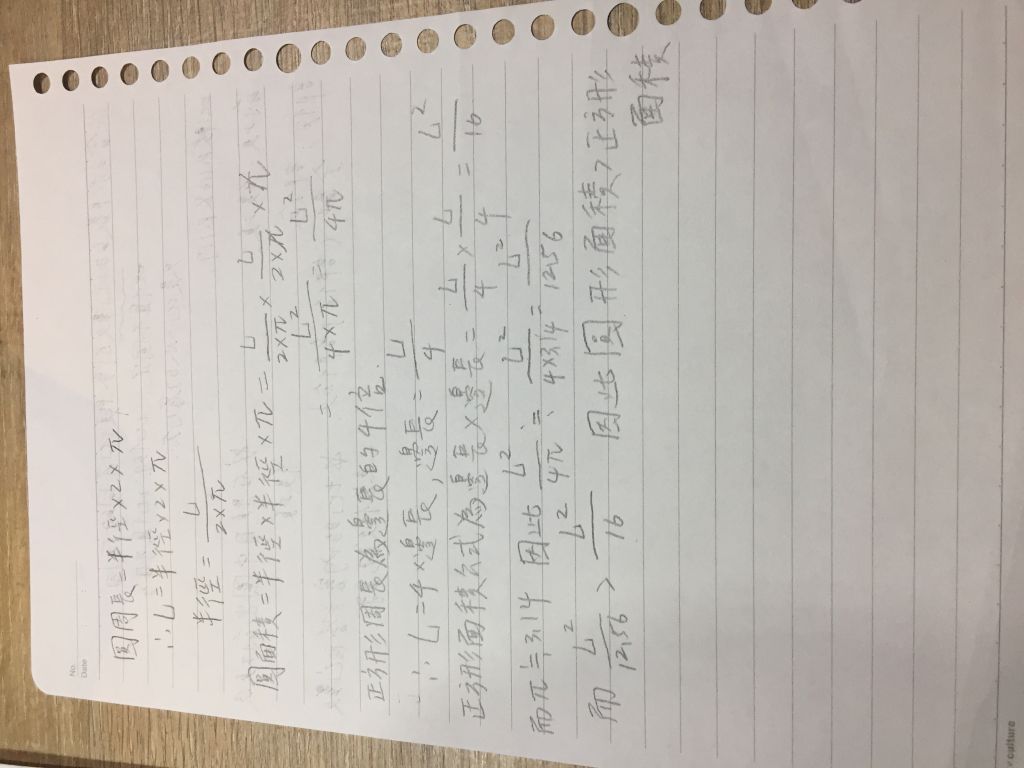 No.
Date
圓周長=半徑×2×π
∴L=半徑×2×π
半徑=L/2×π
圓面積=半徑×半徑×π=L/2×π×L/2×π×π
=L²/4×π=L²/4π
正方形周長為邊長的4倍.
∴L=4×邊長,邊長=L/4
正方形面積公式為邊長×邊長=L/4×L/4=L²/16
而π≒3.14 因此L²/4π≒L²/4×3.14=L²/12.56
而L²/12.56>L²/16 因此圓形面積>正方形
面積
culture